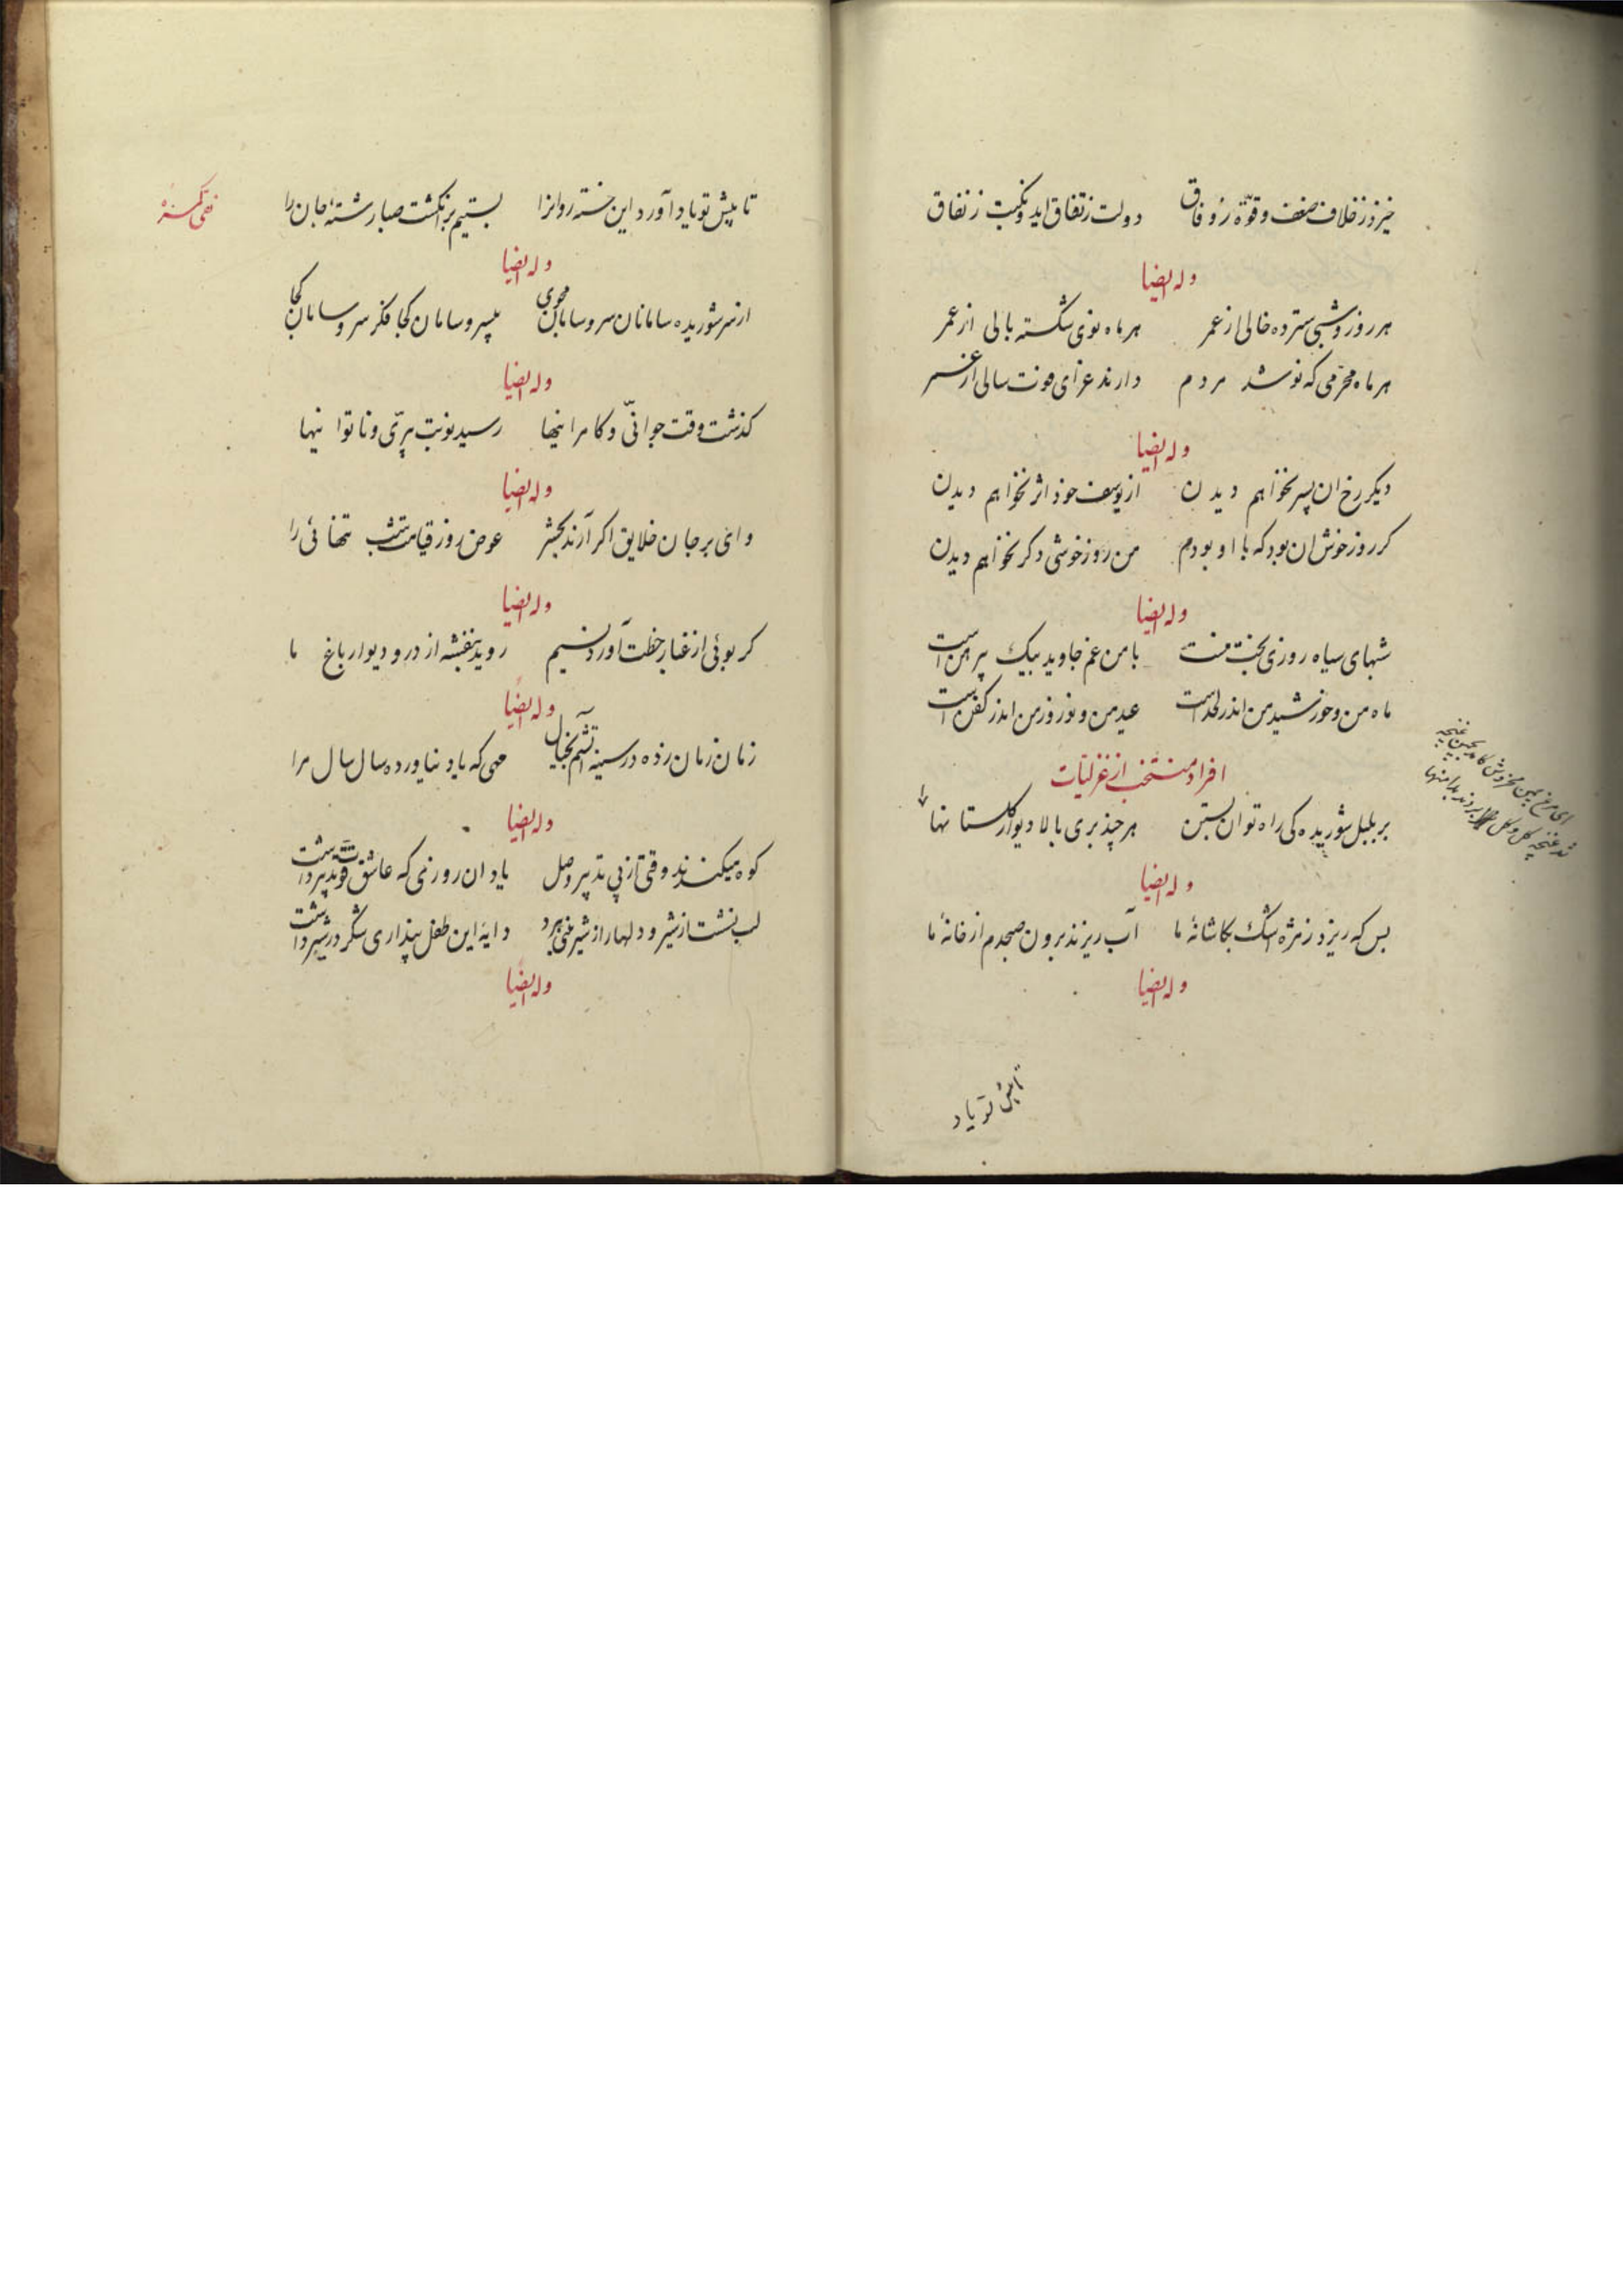 خیزد ز خلاف ضعف و قوّة ز وفاق دولت ز تفاق اید و نکبت ز نفاق
وله ایضا
هر روز و شبی سترده خالی از عمر هر ماه نوی شکسته بالی از عمر
هر ماه محرّمی که نو شد مردم دارند عزای فوت سالی از عمر
وله ایضا
دیگر رخ ان پسر نخواهم دیدن از یوسف خود اثر نخواهم دیدن
کر روز خوش ان بود که با او بودم من روز خوشی دکر نخواهم دیدن
وله ایضا
شبهای سیاه روزی بخت منست با من غم جاوید بیک پیرهن است
ماه من و خورشید من اندر لحد است عید من و نوروز من اندر کفن است
وله ایضا
افراد منتخب از غزلیات
بر بلبل شوریده کی راه توان بستن هر چند بری بالا دیوار کلستانها
ای مرغ چمن مخروش کامد بچمن غنچه
شد غنچه کل و کل را بردند بدامنها
وله ایضا
بس که ریزد ز مژه اشک بکاشانهٔ ما آب ریزند برون صبحدم از خانهٔ ما
وله ایضا
تا پیش تو یاد
تا پیش تو یاد آورد این خسته روانرا بستیم بر انکشت صبا رشتهٔ جان را
وله ایضا
از سر شوریده سامانان سر و سامان مجوی بیسر و سامان کجا فکر سر و سامان کجا
وله ایضا
کذشت وقت جوانّی و کامرانیها رسید نوبت پیرّی و ناتوانیها
وله ایضا
وای بر جان خلایق اکر آرند بحشر عوض روز قیامت شب تنهائی را
وله ایضا
کر بوئی از غبار خطت آورد نسیم روید بنفشه از در و دیوار باغ ما
وله ایضا
زمان زمان زده در سینه آتشم بخیال مهی که یاد نیاورده سال سال مرا
وله ایضا
کوه میکندند وقتی از پی تدبیر وصل یاد ان روزی که عاشق قوت تدبیر داشت
لب نشست از شیر و دلها را ز شیرینی ببرد دایهٔ این طفل پنداری شکر در شیر داشت
وله ایضا